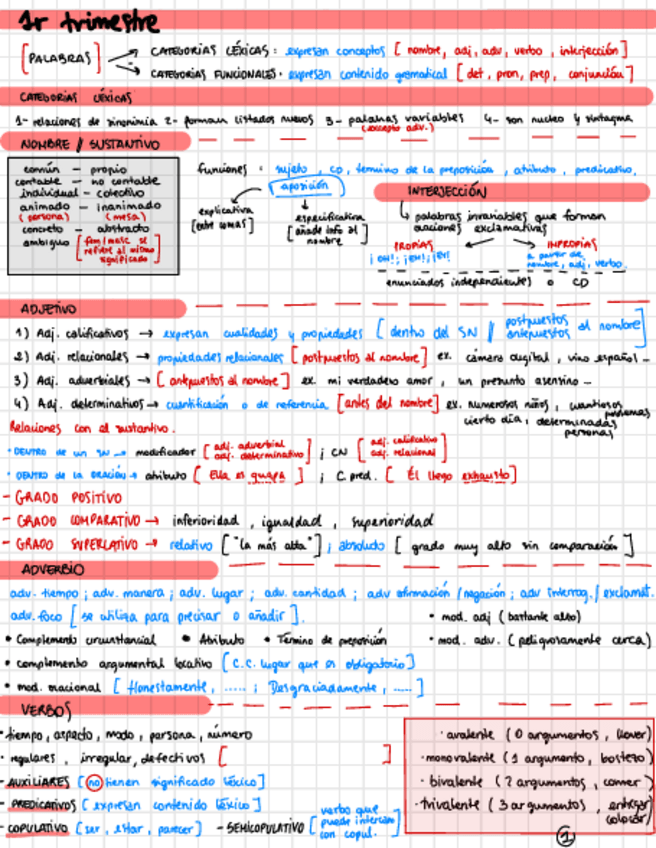 1r trimestre
[PALABRAS]
CATEGORÍAS LÉXICAS: expresan conceptos [nombre, adj, adv, verbo, interjección]
CATEGORÍAS FUNCIONALES: expresan contenido gramatical [det, pron, prep, conjunción]
CATEGORÍAS LÉXICAS
1- relaciones de sinonimia 2- forman listados nuevos 3- palabras variables 4- son nucleo y sintagma
(excepto adv.)
NOMBRE // SUSTANTIVO
común - propio
contable - no contable
individual - colectivo
animado - inanimado
(persona) (mesa)
concreto - abstracto
ambiguo [fem/masc se refiere al mismo significado]
funciones: sujeto, CD, termino de la preposición, atributo, predicativo.
aposición
explicativa
[entre comas]
especificativa
[añade info al nombre]
INTERJECCIÓN
palabras invariables que forman oraciones exclamativas
PROPIAS
¡oh!; ¡eh!; ¡ey!
IMPROPIAS
a partir de nombre, adj, verbo.
enunciados independientes o CD
ADJETIVO
1) Adj. calificativos → expresan cualidades y propiedades [dentro del SN // postpuestos antepuestos al nombre]
2) Adj. relacionales → propiedades relacionales [postpuestos al nombre] ex. cámara digital, vino español -
3) Adj. adverbiales → [antepuestos al nombre] ex. mi verdadero amor, un presunto asensino -
4) Adj. determinativos → cuantificación o de referencia [antes del nombre] ex. numerosos niños, cuantiosos problemas
cierto día, determinadas personas
Relaciones con el sustantivo.
· DENTRO DE UN SN → modificador [adj. adverbial adj. determinativo] ; CN [adj. calificativo adj. relacional]
· DENTRO DE LA ORACIÓN → atributo [Ella es guapa] ; C. pred. [Él llego exhausto]
- GRADO POSITIVO
- GRADO COMPARATIVO → inferioridad, igualdad, superioridad
- GRADO SUPERLATIVO → relativo ["la más alta"] ; absoluto [grado muy alto sin comparación]
ADVERBIO
adv. tiempo; adv. manera; adv. lugar; adv. cantidad; adv afirmación/negación; adv interrog./exclamat.
adv. foco [se utiliza para precisar o añadir].
• mod. adj (bastante alto)
• Complemento circunstancial • Atributo • Término de preposición
• mod. adv. (peligrosamente cerca)
• complemento argumental locativo [C.C. lugar que es obligatorio]
• mod. oracional [Honestamente, .....; Desgraciadamente, .....]
VERBOS
· tiempo, aspecto, modo, persona, número
· regulares, irregular, defectivos [ ]
- AUXILIARES [no tienen significado léxico]
- PREDICATIVOS [expresan contenido léxico]
- COPULATIVO [ser, estar, parecer] - SEMICOPULATIVO [verbo que puede intercam con copul.]
· avalente (0 argumentos, llover)
· monovalente (1 argumento, bostezo)
· bivalente (2 argumentos, comer)
· trivalente (3 argumentos, entregar colocar)
1